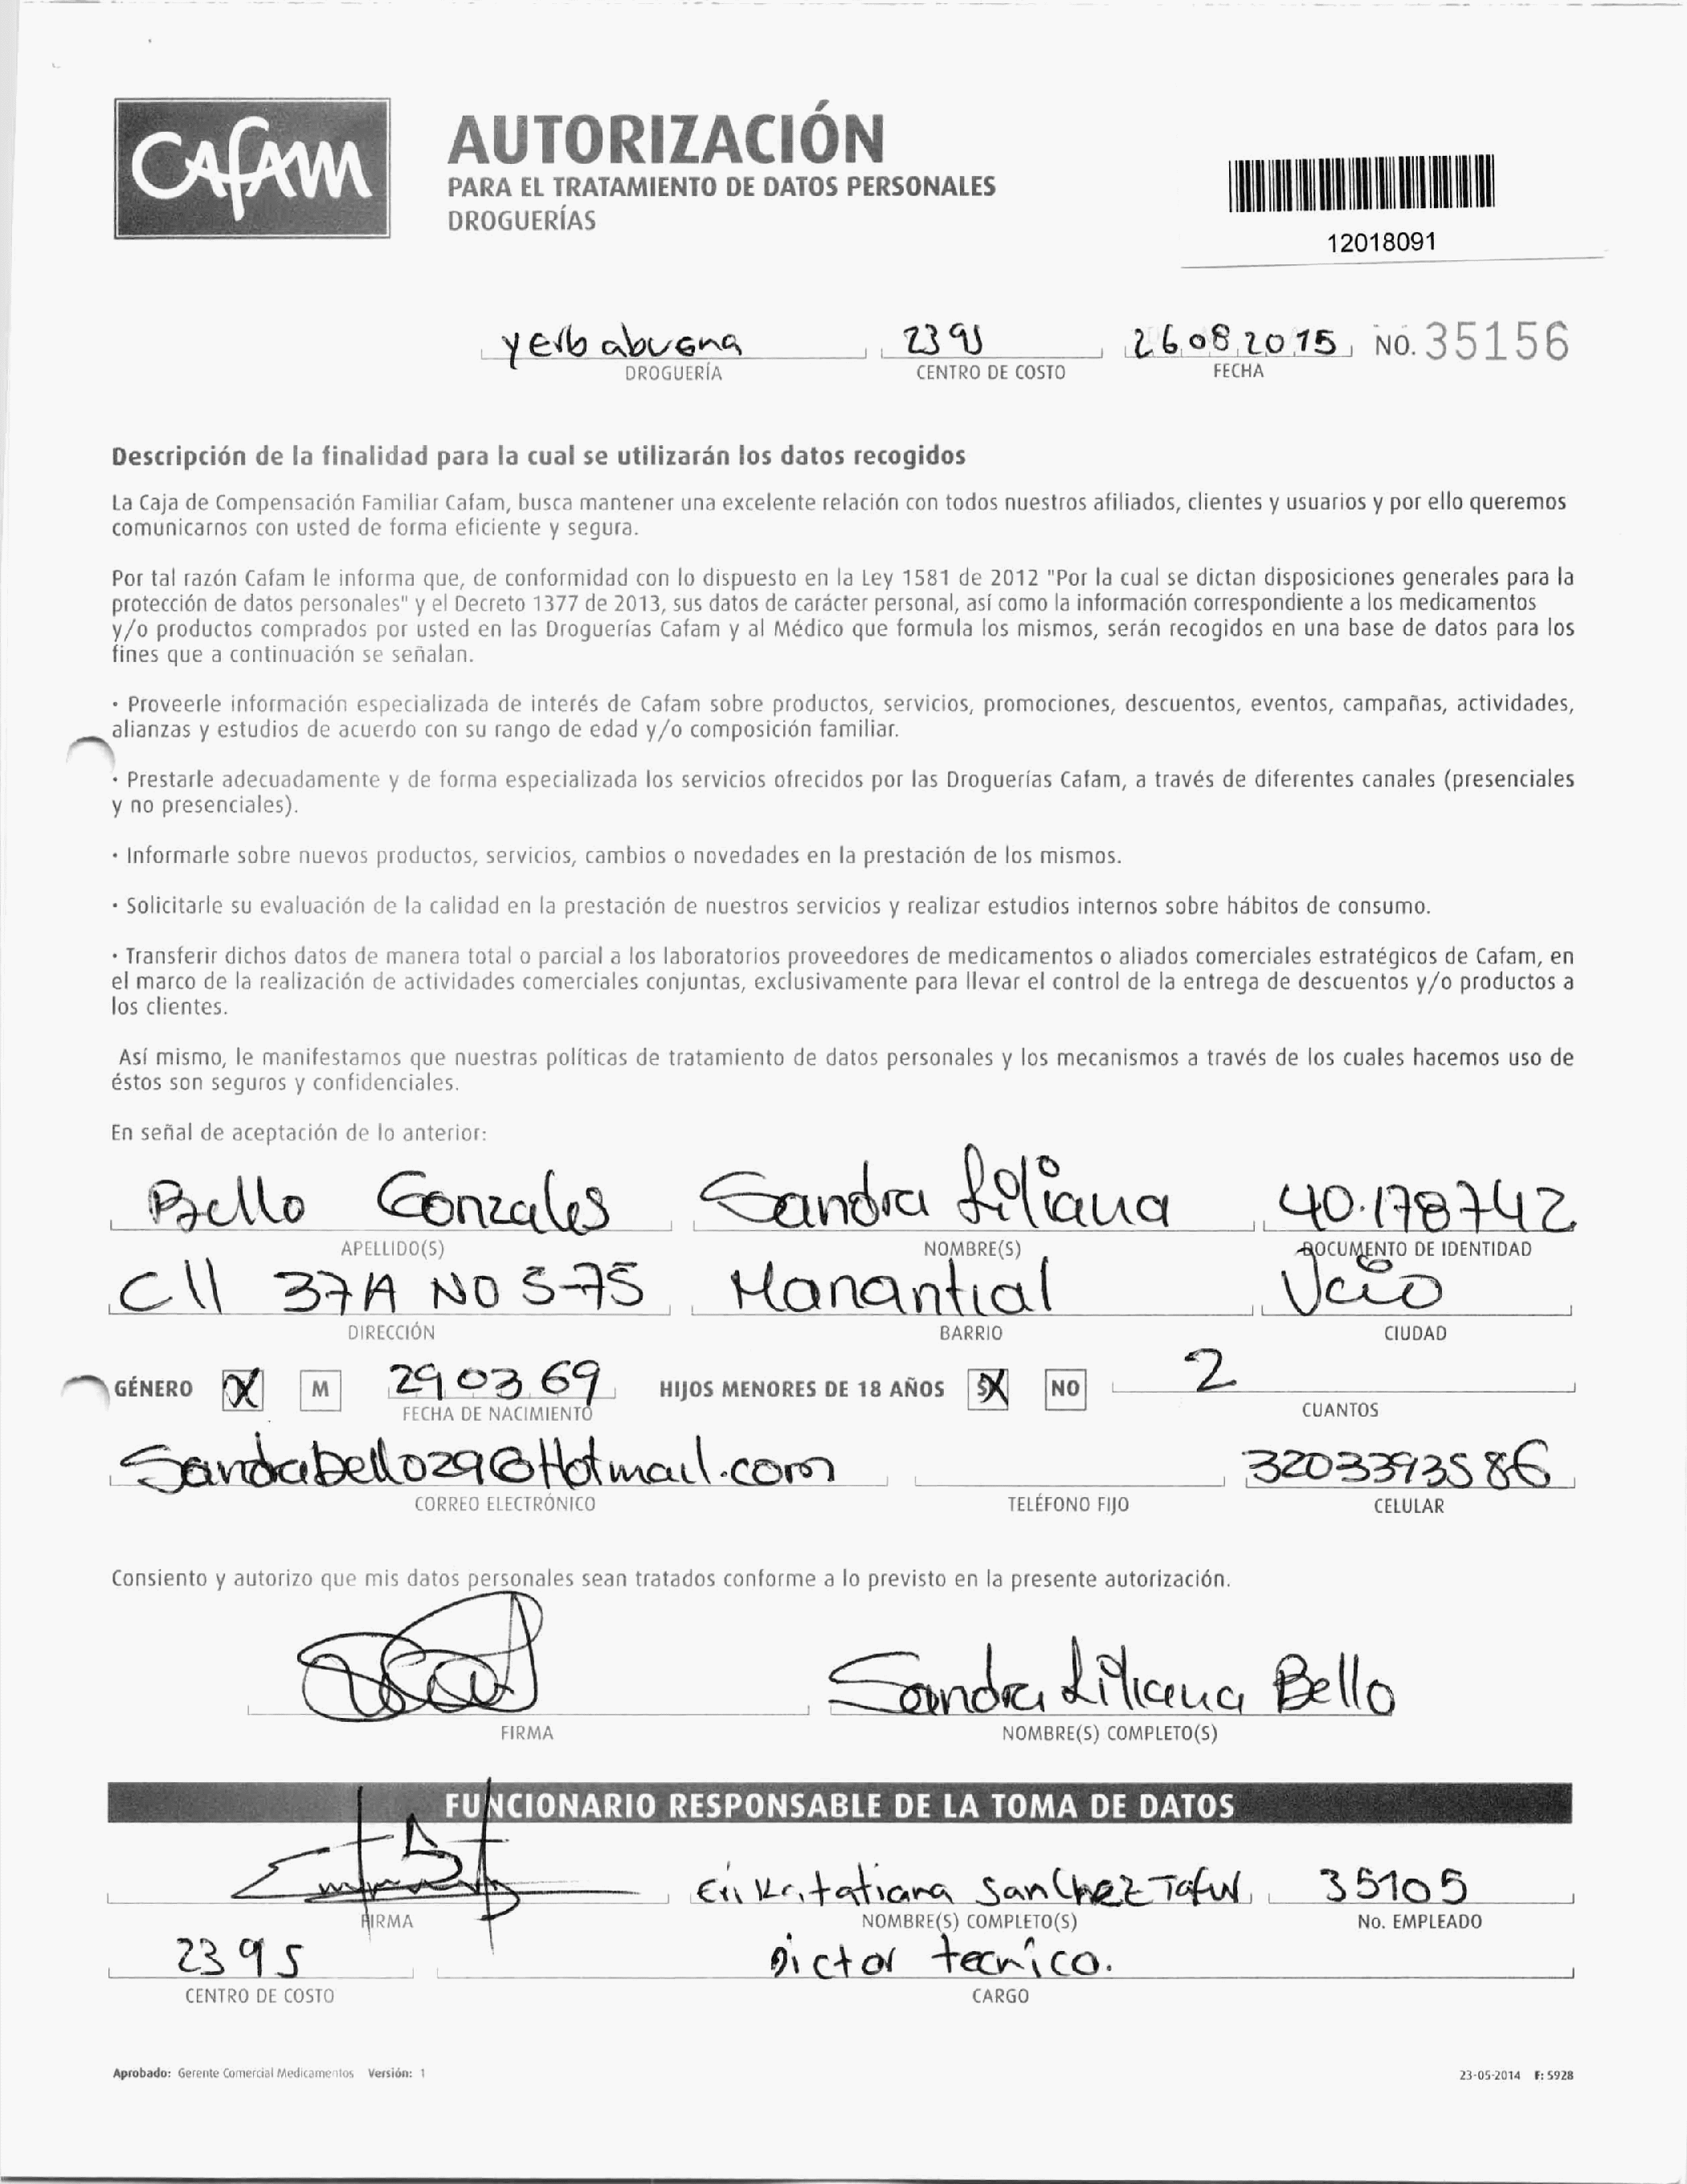 CAFAM
AUTORIZACIÓN
PARA EL TRATAMIENTO DE DATOS PERSONALES
DROGUERÍAS
12018091
yerbabuena 2395 26 08 2015 NO. 35156
DROGUERÍA CENTRO DE COSTO FECHA
Descripción de la finalidad para la cual se utilizarán los datos recogidos
La Caja de Compensación Familiar Cafam, busca mantener una excelente relación con todos nuestros afiliados, clientes y usuarios y por ello queremos
comunicarnos con usted de forma eficiente y segura.
Por tal razón Cafam le informa que, de conformidad con lo dispuesto en la Ley 1581 de 2012 "Por la cual se dictan disposiciones generales para la
protección de datos personales" y el Decreto 1377 de 2013, sus datos de carácter personal, así como la información correspondiente a los medicamentos
y/o productos comprados por usted en las Droguerías Cafam y al Médico que formula los mismos, serán recogidos en una base de datos para los
fines que a continuación se señalan.
· Proveerle información especializada de interés de Cafam sobre productos, servicios, promociones, descuentos, eventos, campañas, actividades,
alianzas y estudios de acuerdo con su rango de edad y/o composición familiar.
· Prestarle adecuadamente y de forma especializada los servicios ofrecidos por las Droguerías Cafam, a través de diferentes canales (presenciales
y no presenciales).
· Informarle sobre nuevos productos, servicios, cambios o novedades en la prestación de los mismos.
· Solicitarle su evaluación de la calidad en la prestación de nuestros servicios y realizar estudios internos sobre hábitos de consumo.
· Transferir dichos datos de manera total o parcial a los laboratorios proveedores de medicamentos o aliados comerciales estratégicos de Cafam, en
el marco de la realización de actividades comerciales conjuntas, exclusivamente para llevar el control de la entrega de descuentos y/o productos a
los clientes.
Así mismo, le manifestamos que nuestras políticas de tratamiento de datos personales y los mecanismos a través de los cuales hacemos uso de
éstos son seguros y confidenciales.
En señal de aceptación de lo anterior:
Bello Gonzales Sandra Liliana 40.178742
APELLIDO(S) NOMBRE(S) DOCUMENTO DE IDENTIDAD
Cll 37A NO 5-75 Manantial Vcio
DIRECCIÓN BARRIO CIUDAD
GÉNERO X M 29 03 69 HIJOS MENORES DE 18 AÑOS SX NO 2
FECHA DE NACIMIENTO CUANTOS
Sandrabello29@Hotmail.com 3203393586
CORREO ELECTRÓNICO TELÉFONO FIJO CELULAR
Consiento y autorizo que mis datos personales sean tratados conforme a lo previsto en la presente autorización.
Sandra Liliana Bello
FIRMA NOMBRE(S) COMPLETO(S)
FUNCIONARIO RESPONSABLE DE LA TOMA DE DATOS
tatiana Sanchez 35105
FIRMA NOMBRE(S) COMPLETO(S) No. EMPLEADO
2395 Dictor tecnico.
CENTRO DE COSTO CARGO
Aprobado: Gerente Comercial Medicamentos Versión: 1 23-05-2014 F: 5928